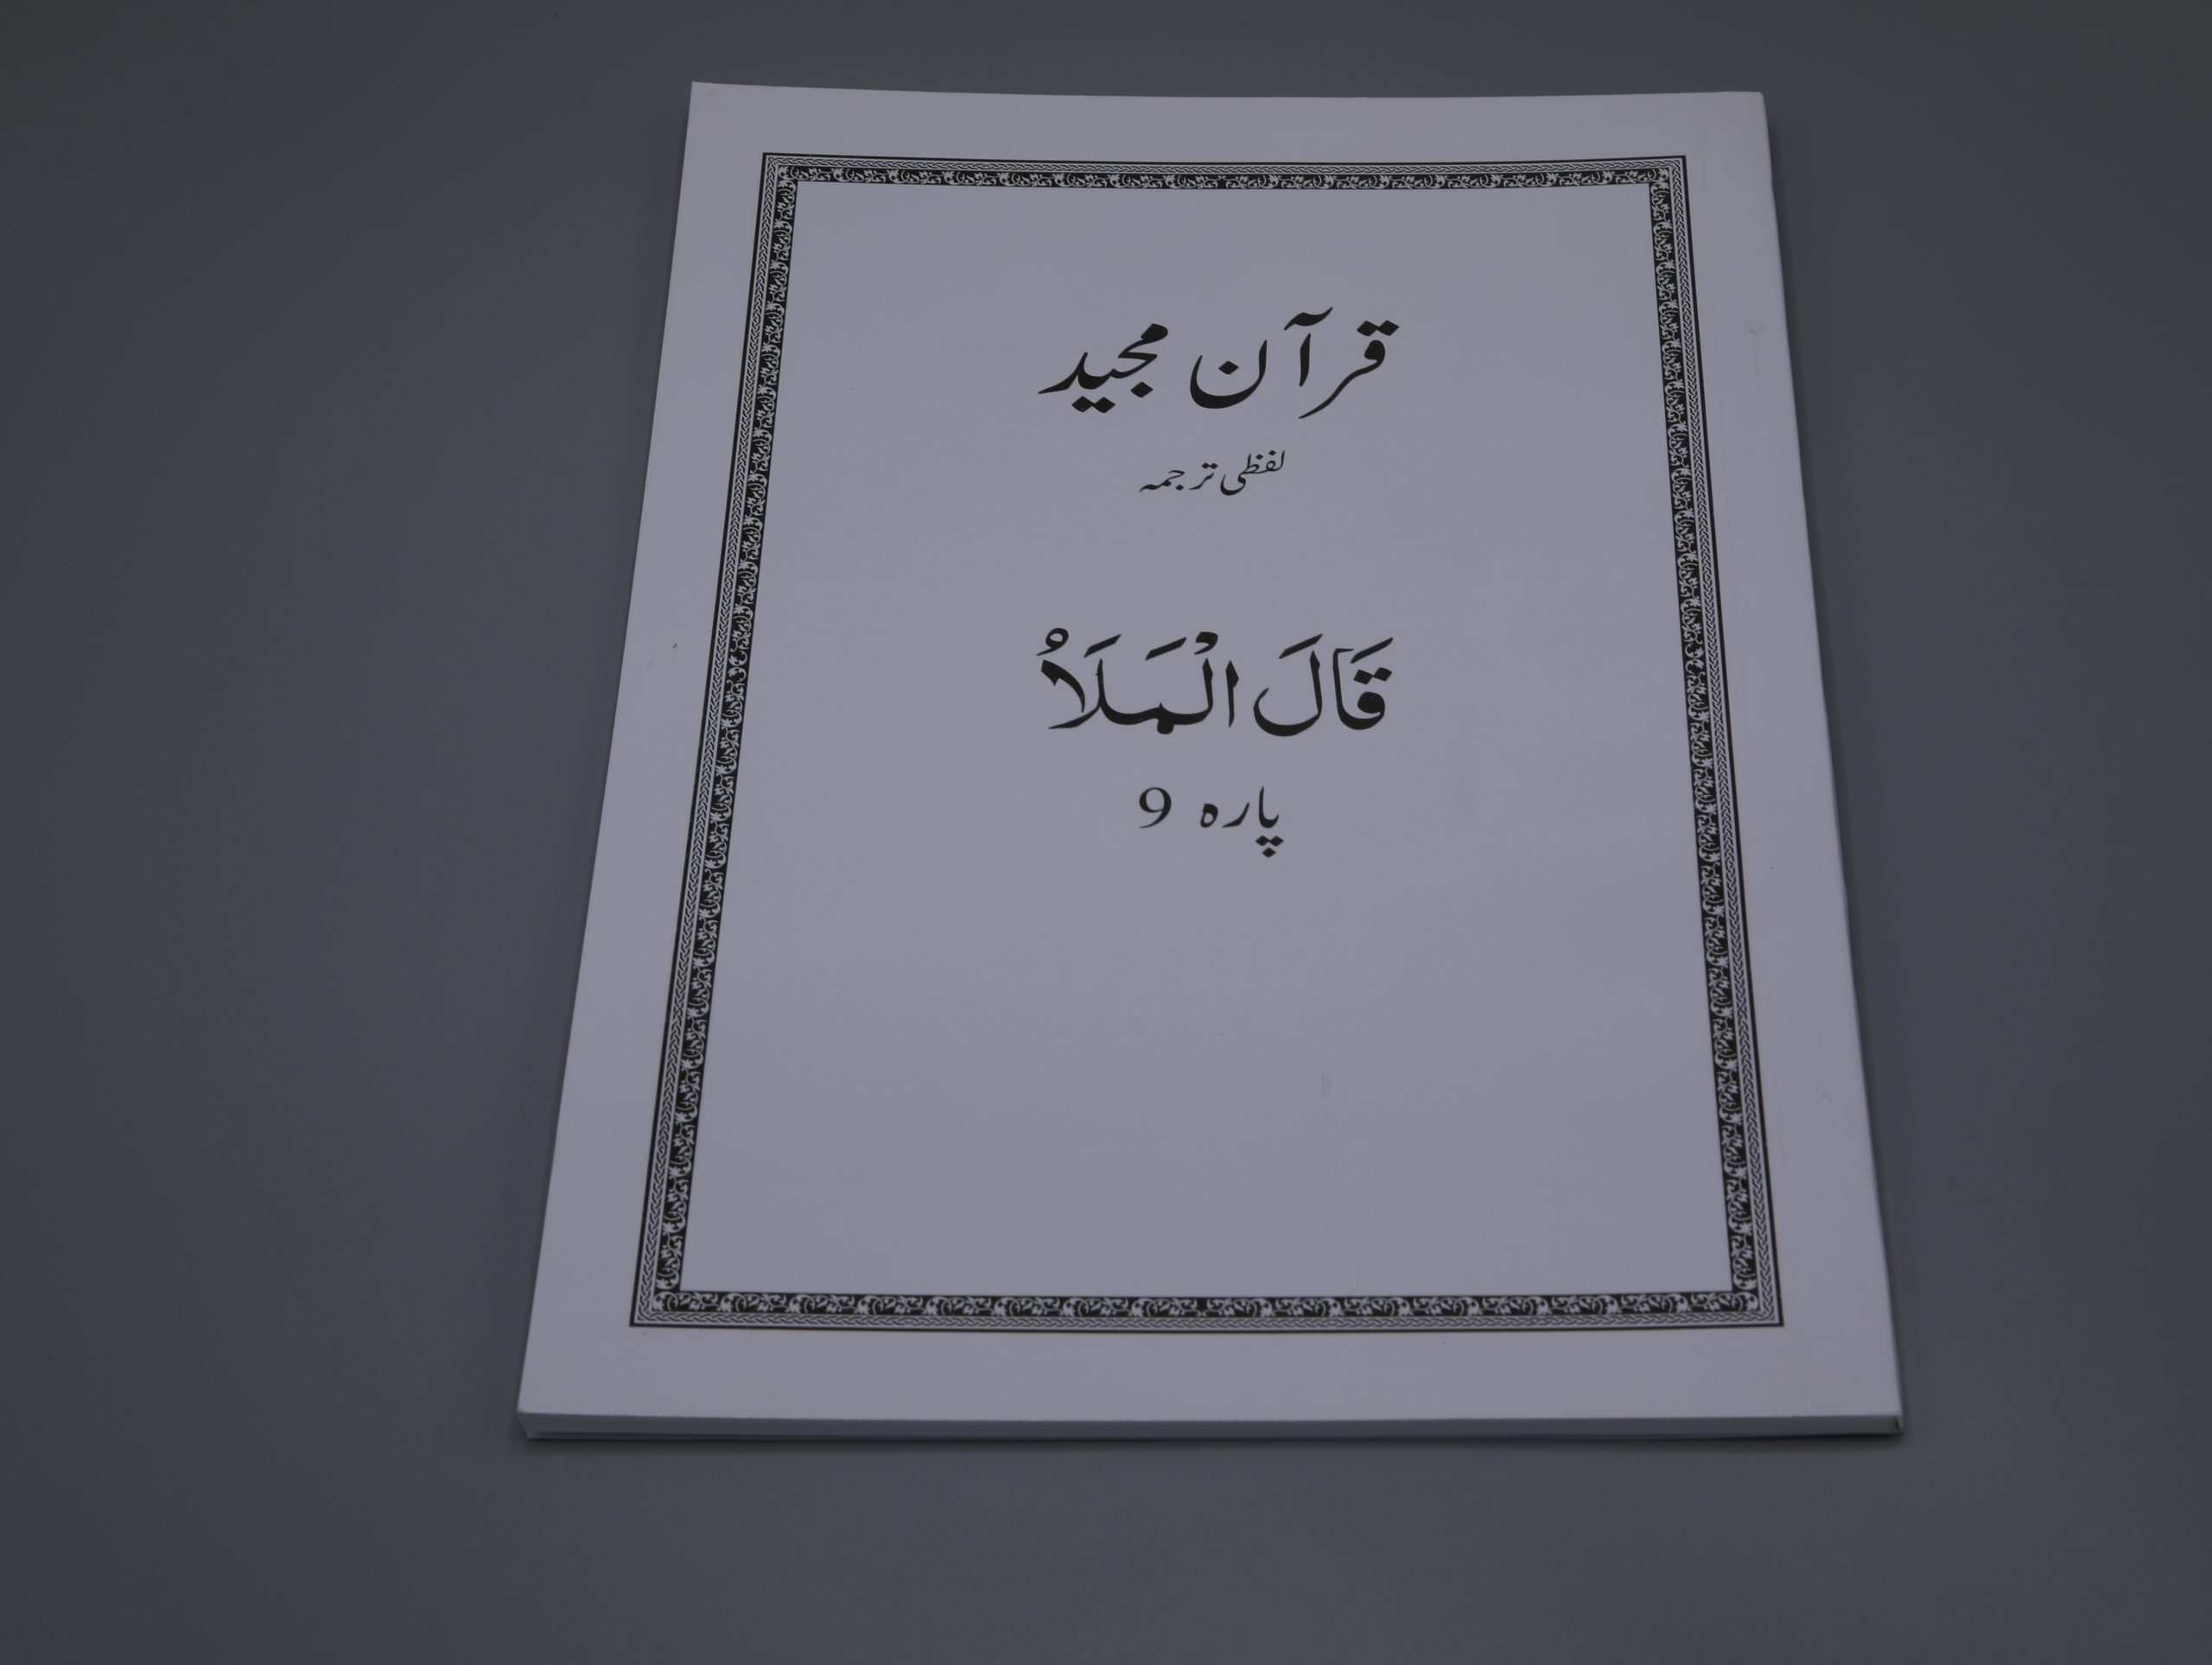 قرآن مجید
لفظی ترجمہ
قَالَ الْمَلَاُ
پارہ 9